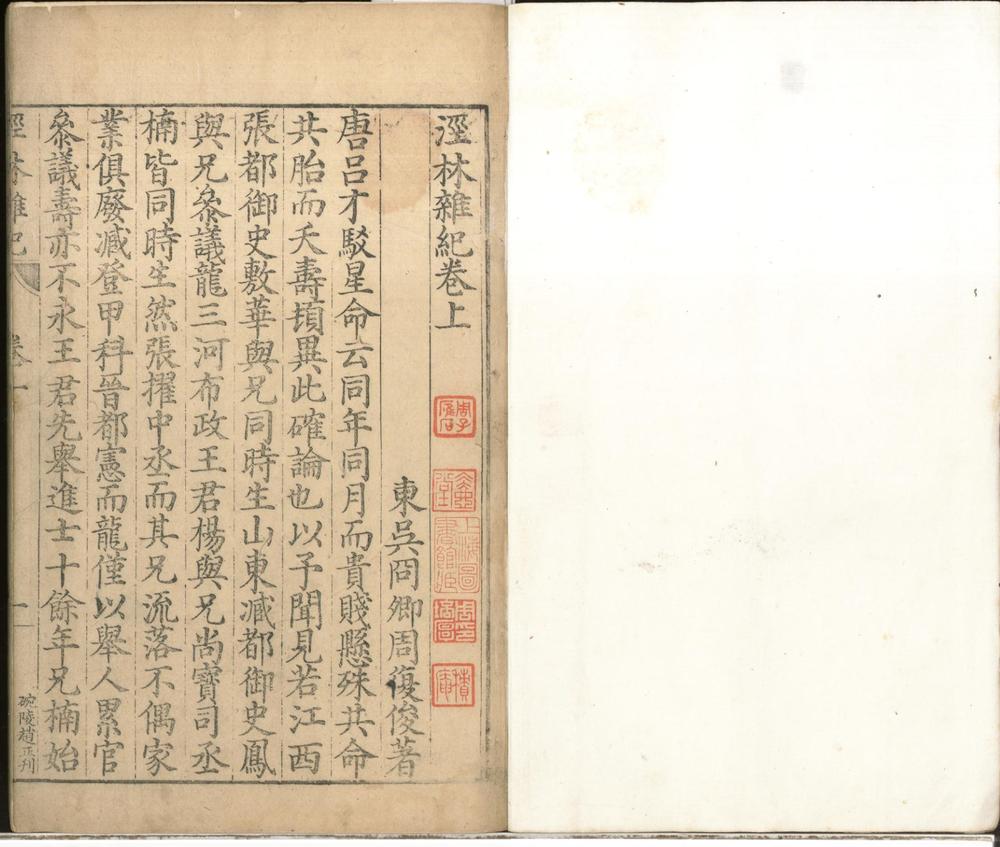 涇林雜紀卷上
東吳冏卿周復俊著
唐呂才駁星命云同年同月而貴賤懸殊共命
共胎而夭壽頓異此確論也以予聞見若江西
張都御史敷華與兄同時生山東臧都御史鳳
與兄叅議龍三河布政王君楊與兄尚寶司丞
楠皆同時生然張擢中丞而其兄流落不偶家
業俱廢臧登甲科晉都憲而龍僅以舉人累官
叅議壽亦不永王君先舉進士十餘年兄楠始
涇林雜紀 卷上 一
上海圖書館藏